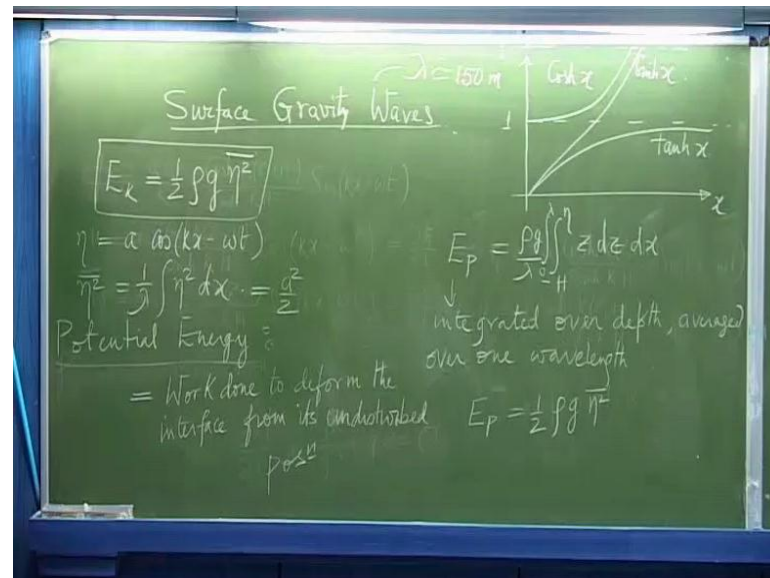 λ ≃ 150 m
Surface Gravity Waves
E_K = 1/2 ρg \overline{η²}
η = a cos(kx - ωt)
\overline{η²} = 1/λ ∫ η² dx = a²/2
Potential Energy :
= Work done to deform the
interface from its undisturbed
posⁿ
Cosh x
Sinh x
1
tanh x
x
E_P = ρg/λ ∫_0^λ ∫_{-H}^η z dz dx
↓
integrated over depth, averaged
over one wavelength
E_P = 1/2 ρg \overline{η²}